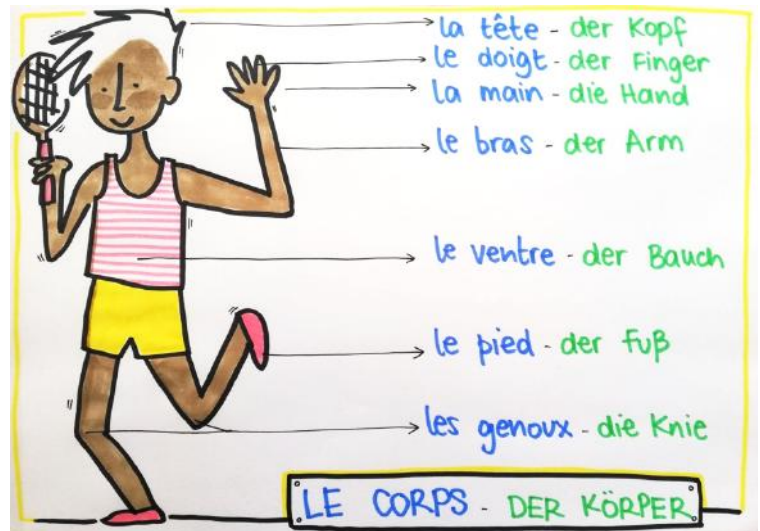 la tête - der Kopf
le doigt - der Finger
la main - die Hand
le bras - der Arm
le ventre - der Bauch
le pied - der Fuß
les genoux - die Knie
LE CORPS - DER KÖRPER